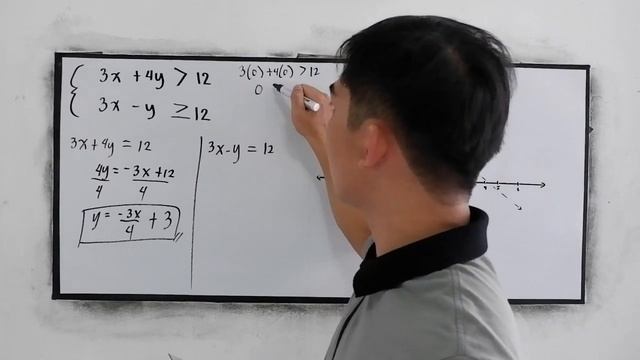 3x + 4y > 12
3x - y ≥ 12
3(0) + 4(0) > 12
0
3x + 4y = 12
4y = -3x + 12
4 4
y = -3x/4 + 3
3x - y = 12